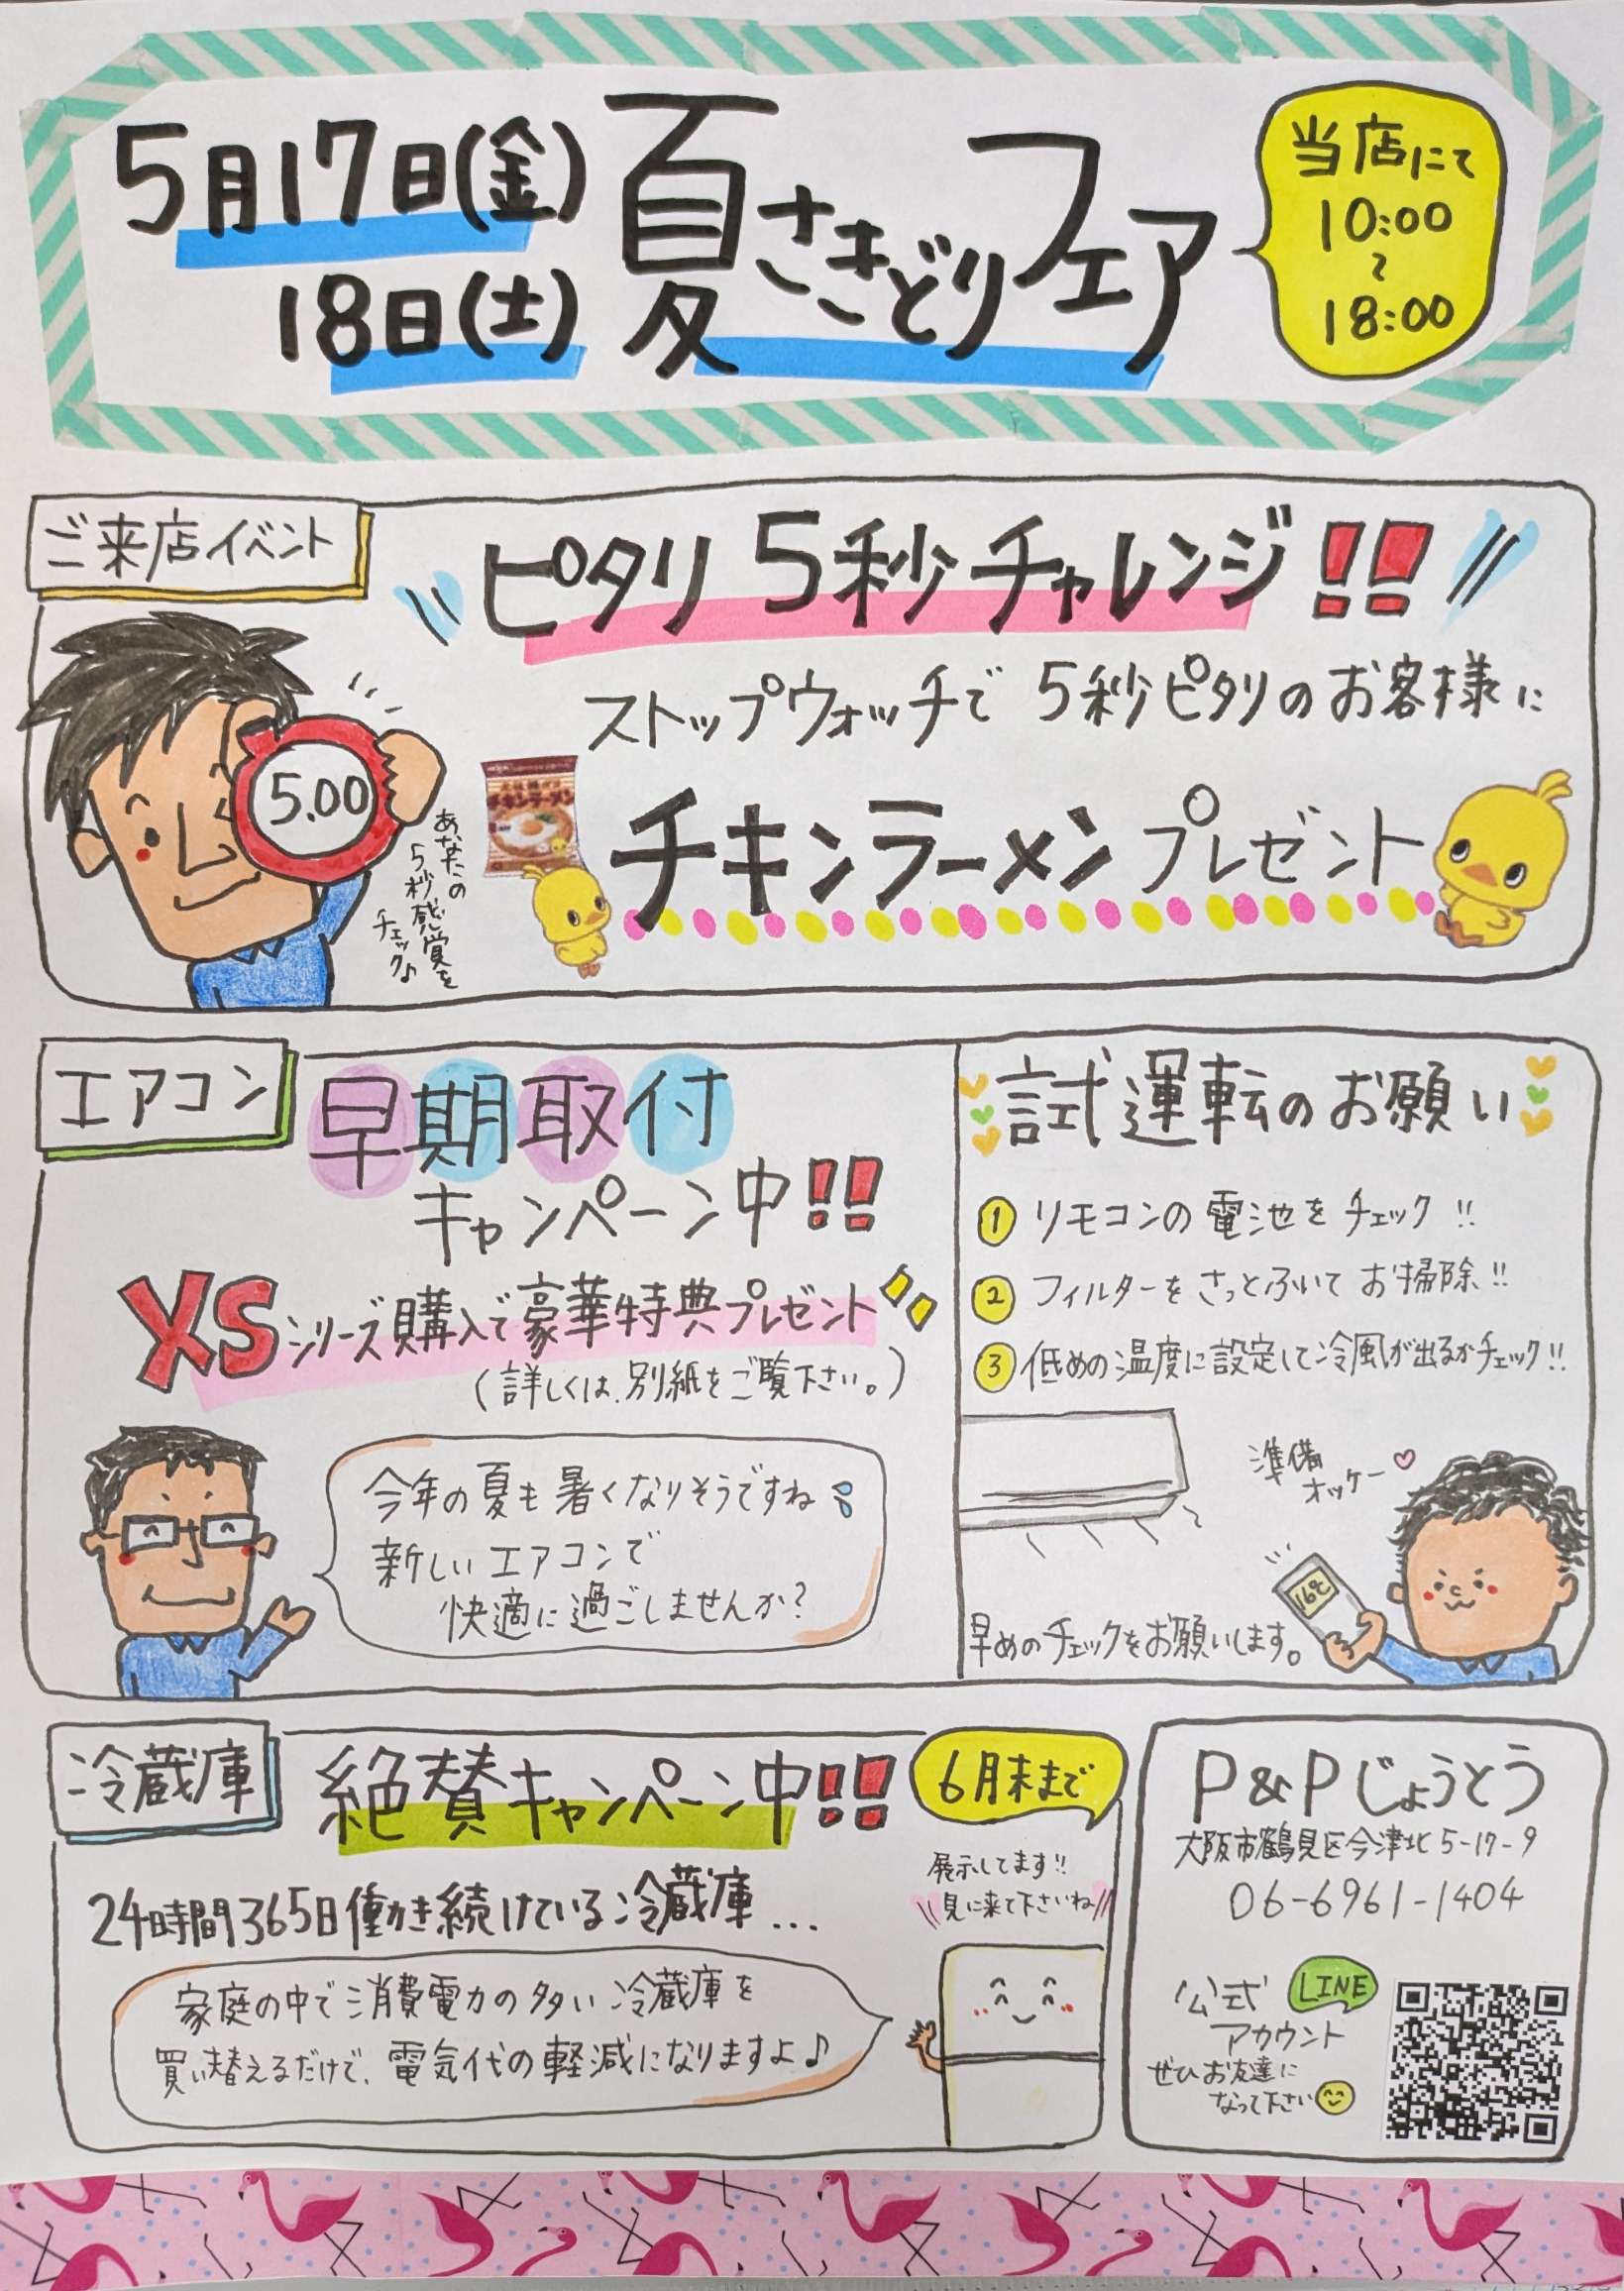 5月17日(金)
18日(土)
夏さきどりフェア
当店にて
10:00
〜
18:00
ご来店イベント
ピタリ5秒チャレンジ!!
ストップウォッチで 5秒ピタリのお客様に
チキンラーメン プレゼント
チキンラーメン
5.00
あなたの
5秒感覚を
チェック♪
エアコン
早期取付
キャンペーン中!!
XSシリーズ購入で豪華特典プレゼント
(詳しくは、別紙をご覧下さい。)
今年の夏も暑くなりそうですね
新しいエアコンで
快適に過ごしませんか?
試運転のお願い
① リモコンの電池をチェック!!
② フィルターをさっとふいてお掃除!!
③ 低めの温度に設定して冷風が出るかチェック!!
準備
オッケー♡
16℃
早めのチェックをお願いします。
冷蔵庫
絶賛キャンペーン中!!
6月末まで
24時間365日働き続けている冷蔵庫...
展示してます!!
見に来て下さいね
家庭の中で消費電力の多い冷蔵庫を
買い替えるだけで、電気代の軽減になりますよ♪
P&Pじょうとう
大阪市鶴見区今津北5-17-9
06-6961-1404
公式 LINE
アカウント
ぜひお友達に
なって下さい